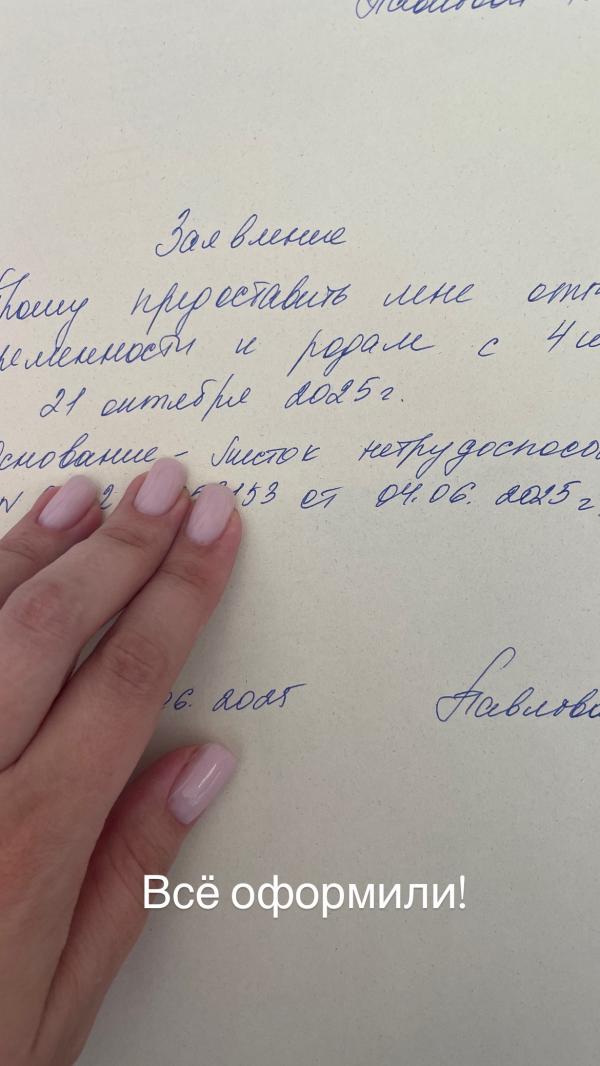 Заявление
Прошу предоставить мне отп
ременности и родам с 4 и
21 октября 2025г.
Основание - листок нетрудоспособ
N 153 от 04.06. 2025г,
06. 2025 Павлова
Всё оформили!